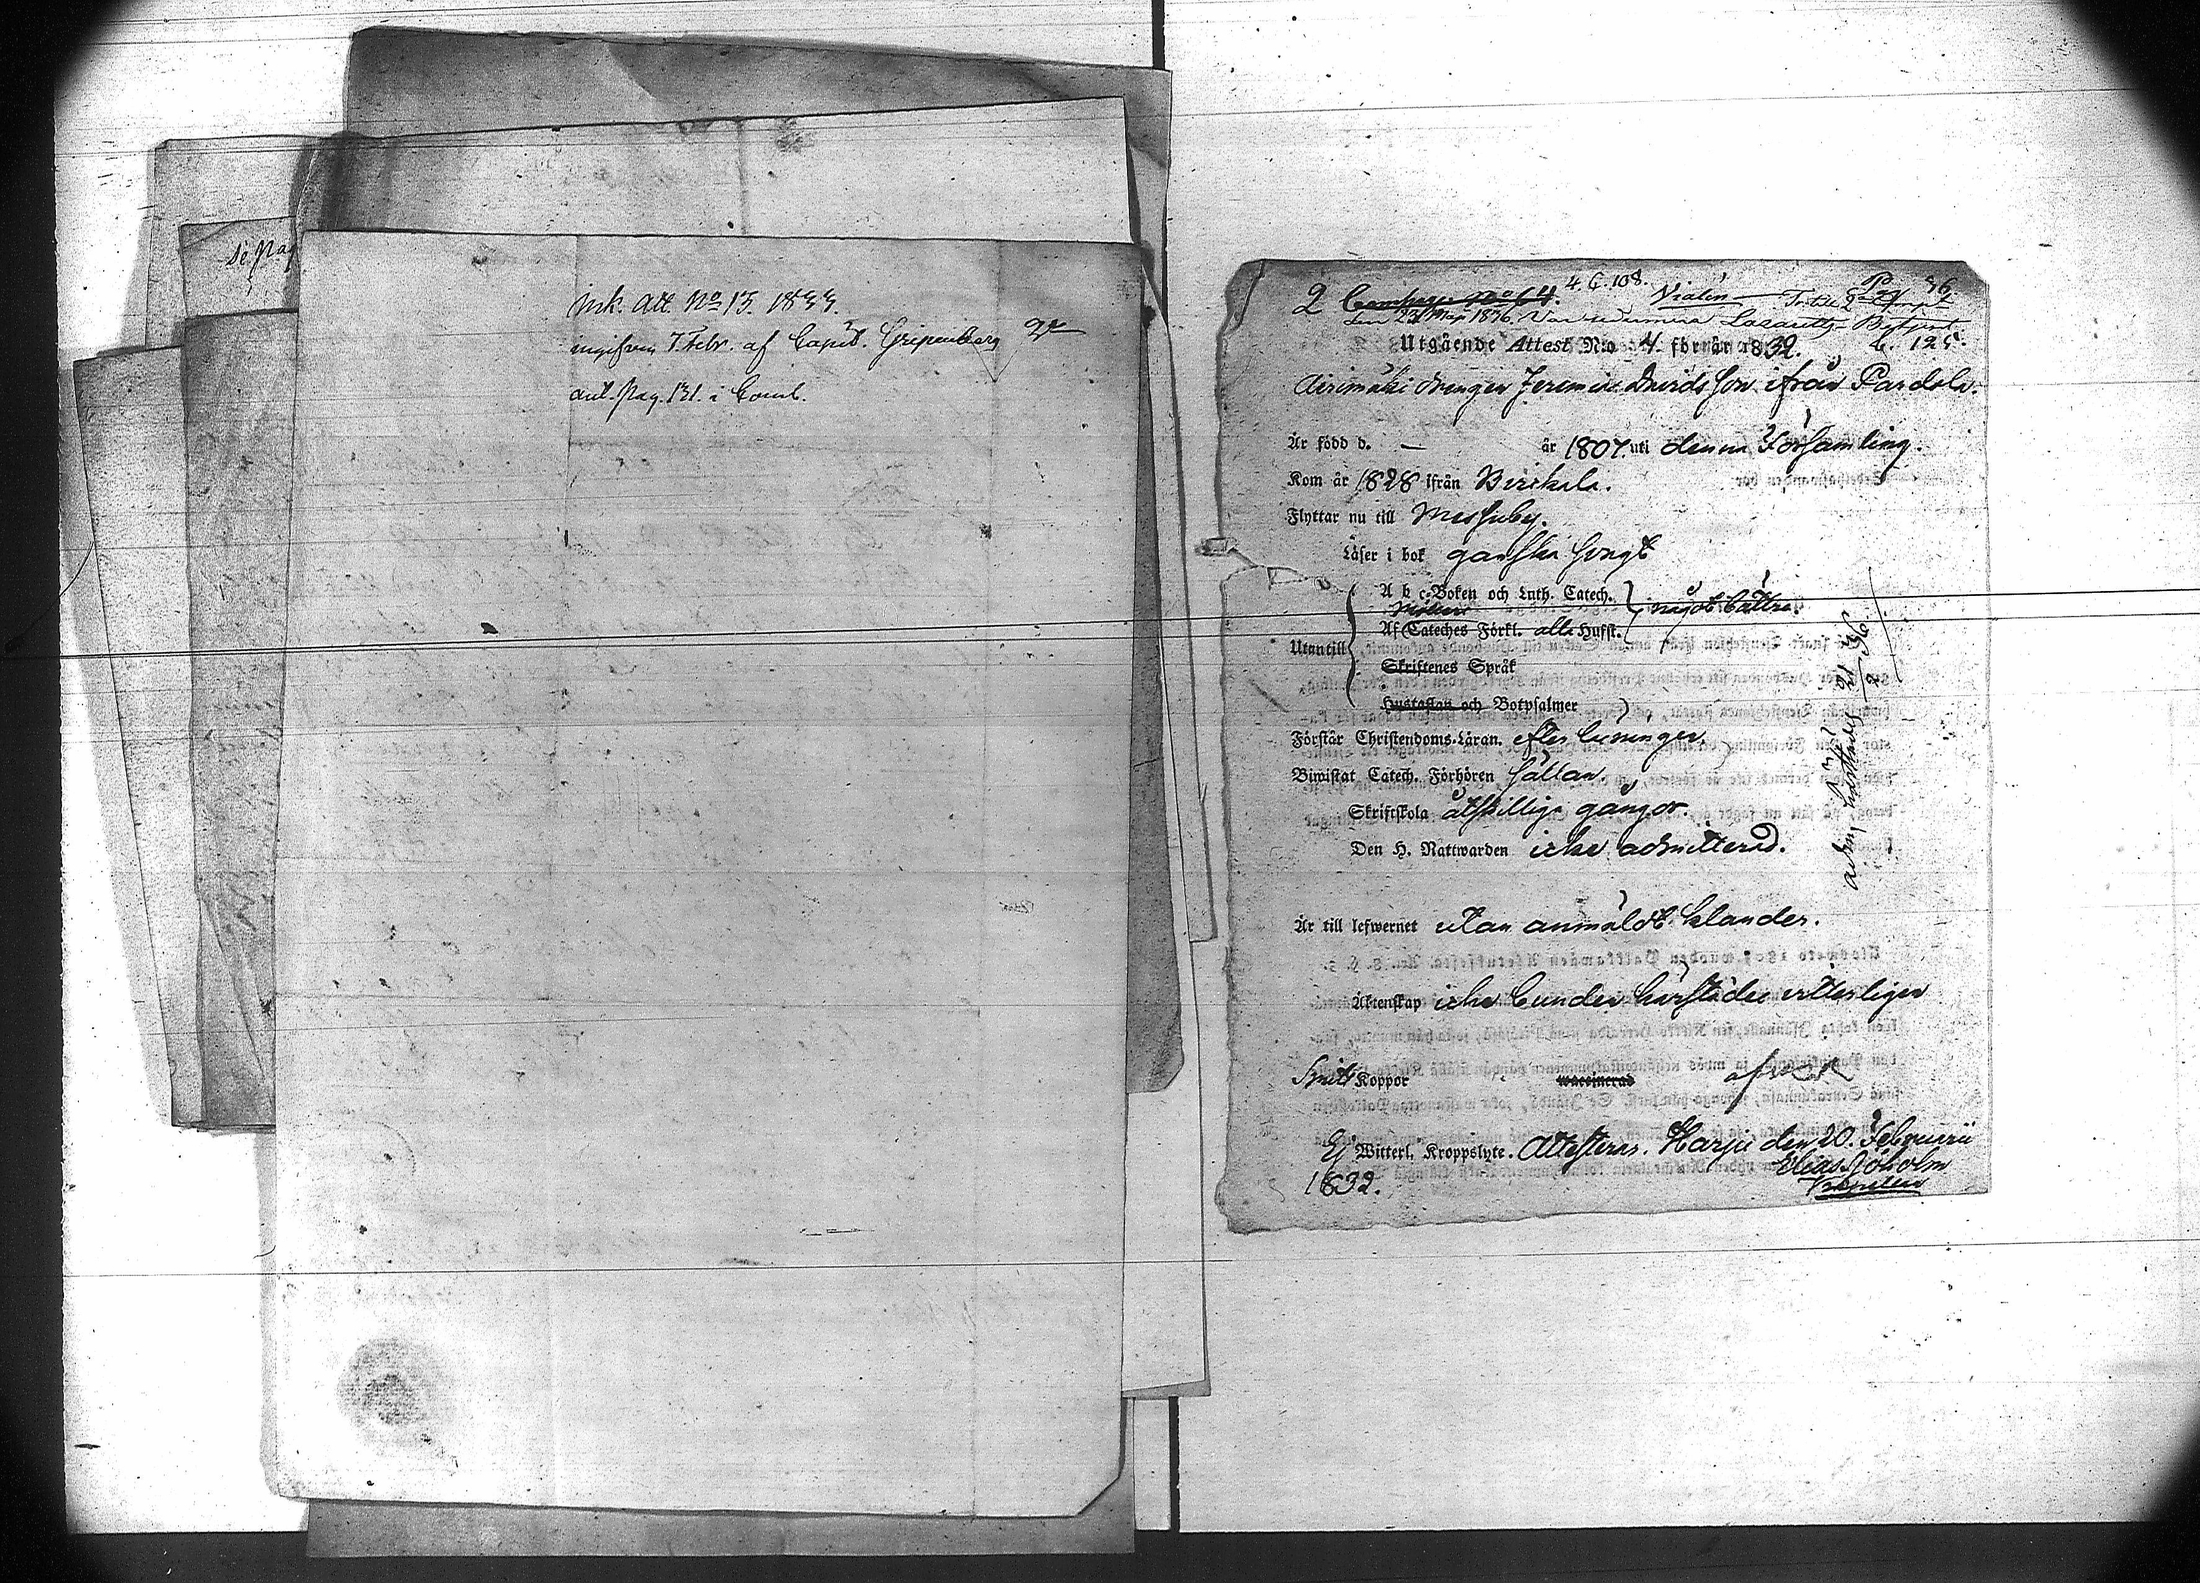 Se Pag
Ink. Att. No 15. 1833.
ingifven 7. Febr. af Capit. Gripenberg
ant. Pag. 131. i Comb.
4. C. 108. Vialén 36
2 No 64.
den 23 Maj 1836 Lazaretts-Betjent
Utgående Attest No 4 för år 1832. C. 125.
drengen Jeremias Davidsson ifrån Pardala.
Är född d. — år 1807. uti denna Församling.
Kom år 1828 ifrån Birkala.
Flyttar nu till Messuby.
Läser i bok ganska svagt
A b c-Boken och Luth. Catech. något bättre.
Af Cateches Förkl. alla Hufst.
Utantill
Skriftenes Språk
Hustaflan och Botpsalmer
Förstår Christendoms-Läran. efter läsningen
Biwistat Catech. Förhören sällan.
Skriftskola åtskillige gånger
Den H. Nattwarden icke admitterad.
Är till lefwernet utan anmäldt klander.
Äktenskap icke bunden härstädes vitterligen
Smitt Koppor waccinerad
Ej Witterl. Kroppslyte. Attesteras. Harju den 20. Februarii
1832. Elias Sjöholm